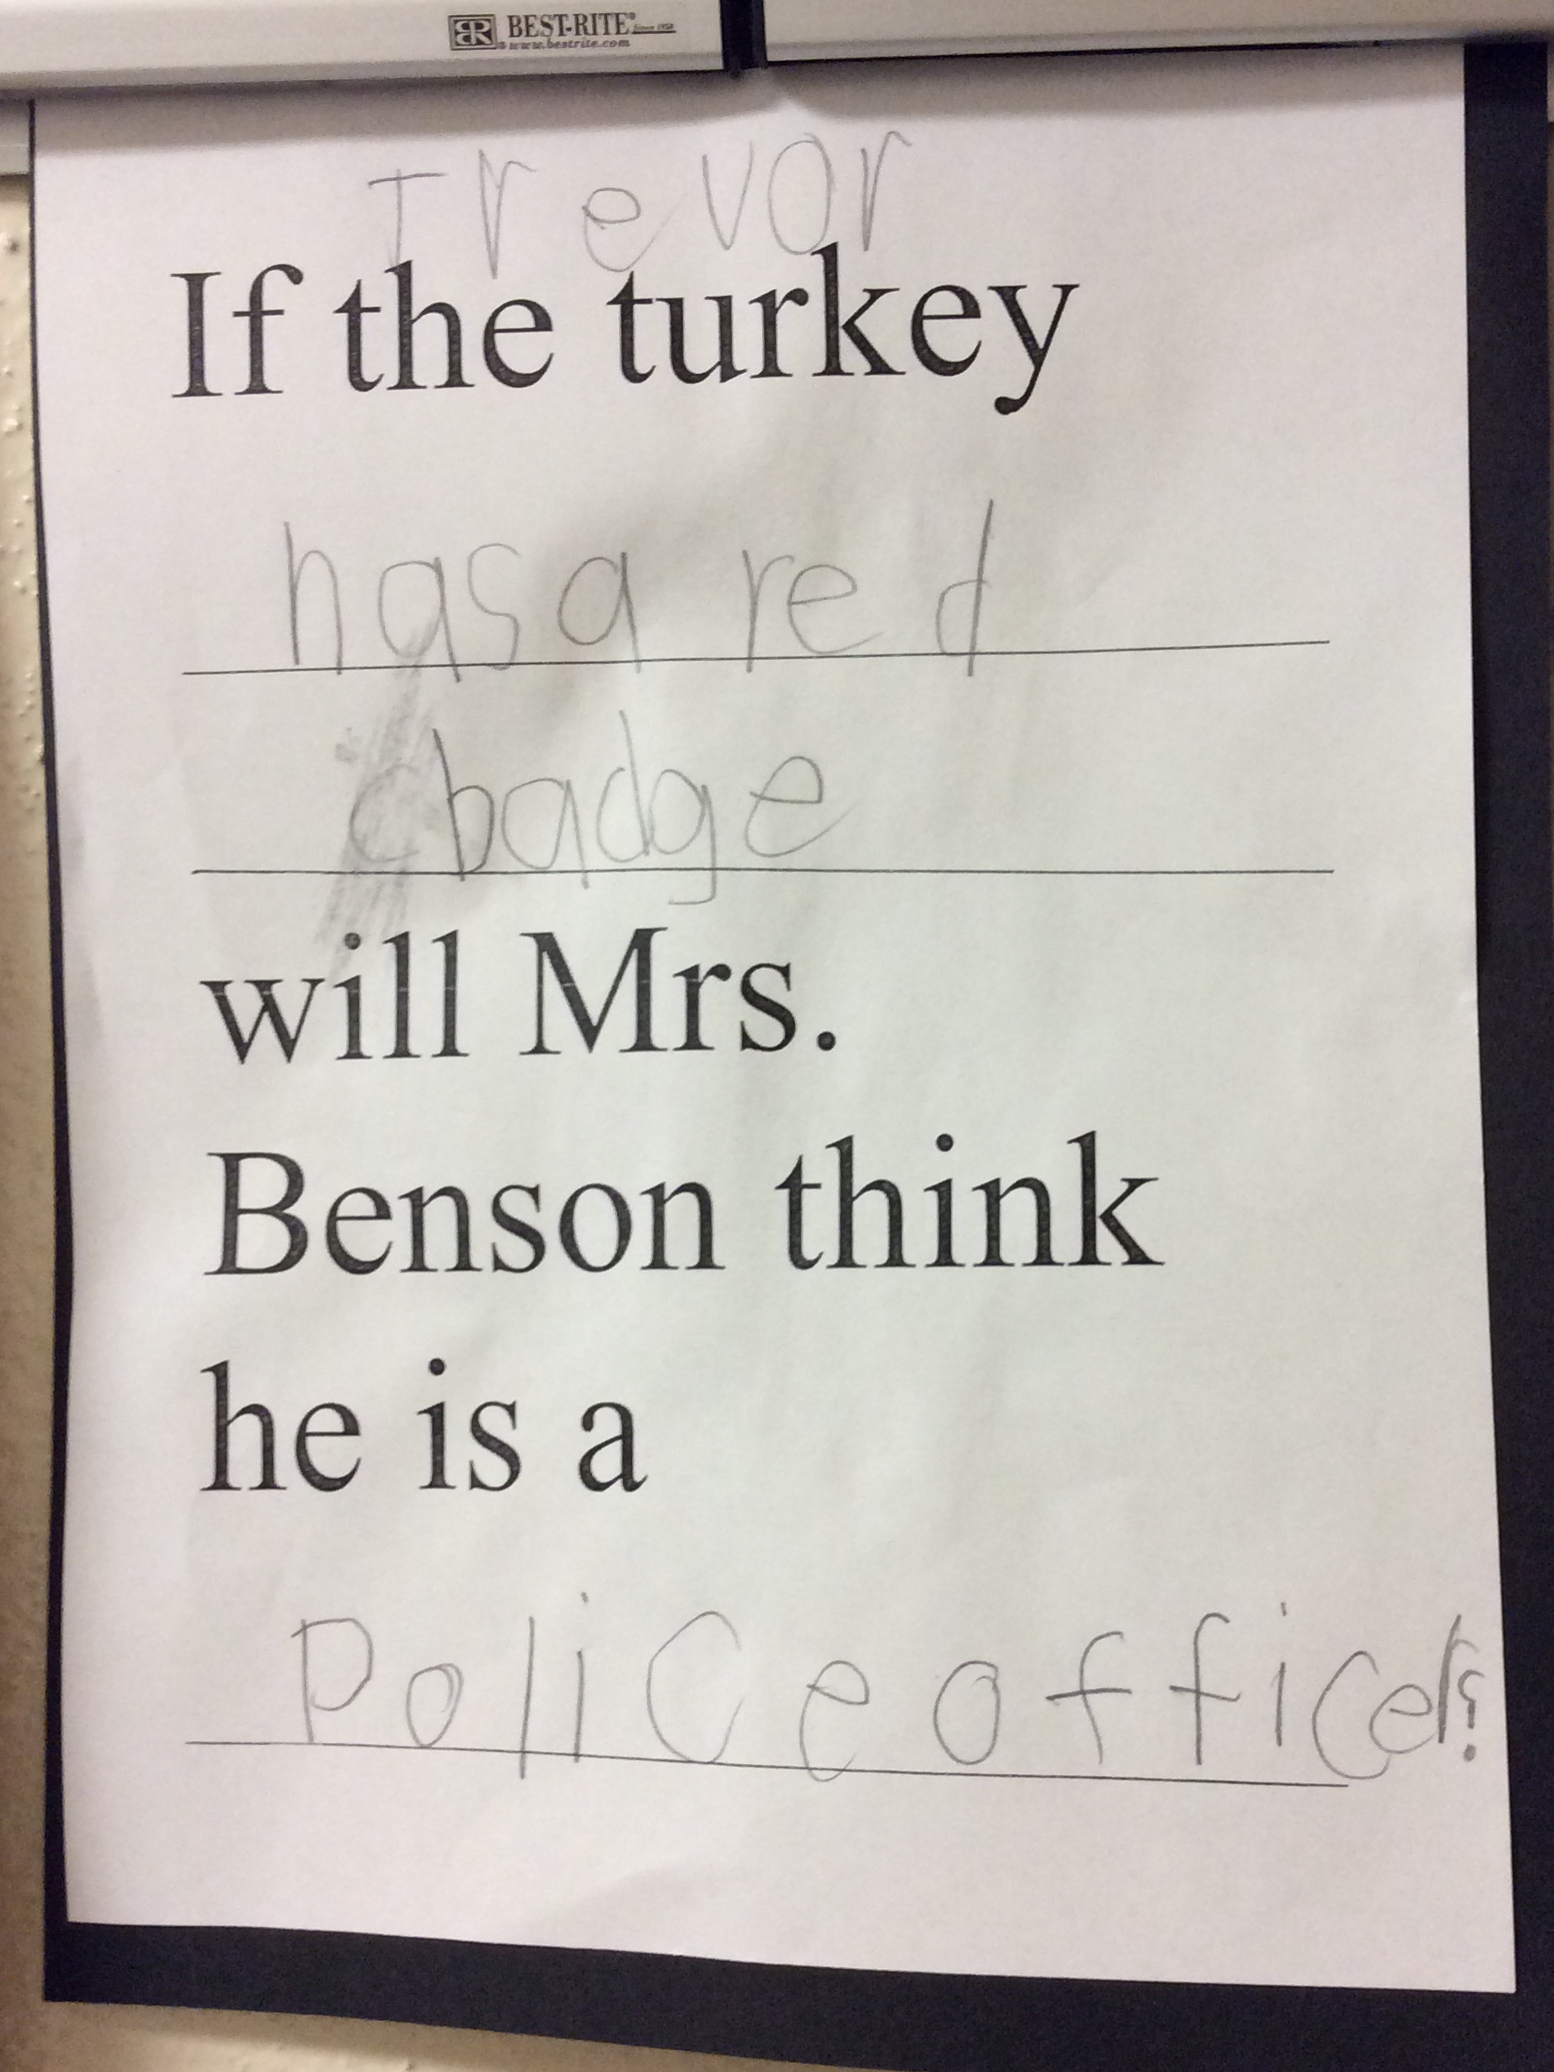 BEST-RITE® Since 1950
www.bestrite.com
Trevor
If the turkey
has a red
badge
will Mrs.
Benson think
he is a
Police officer?